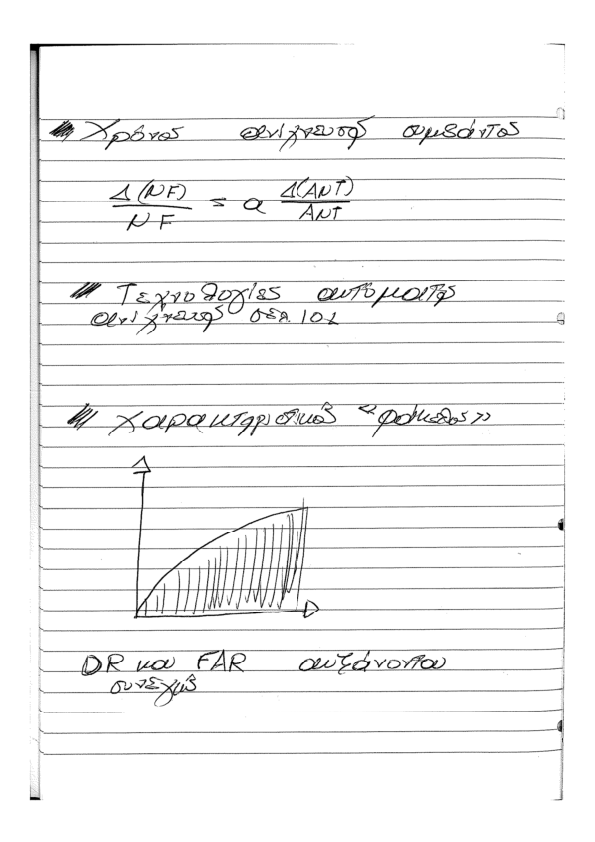 Χρόνος ανίχνευσης συμβάντος
Δ(NF) / NF = α Δ(ANT) / ANT
Τεχνολογίες αυτόματης
ανίχνευσης σελ 101
Χαρακτηριστικός "φάκελος"
DR και FAR αυξάνονται
συνεχώς